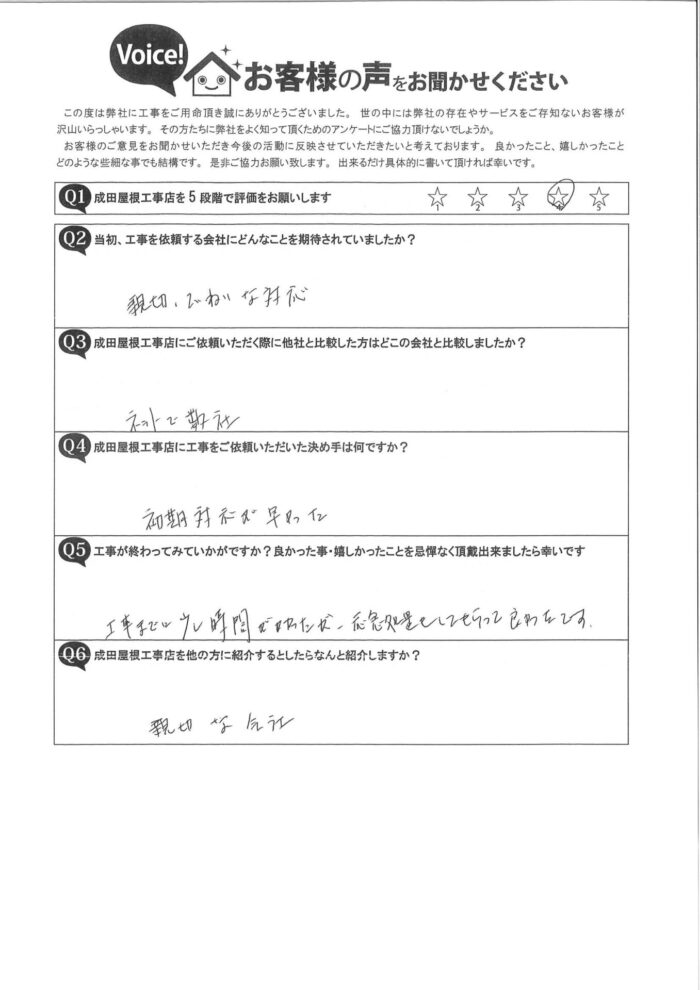 Voice!
お客様の声をお聞かせください
この度は弊社に工事をご用命頂き誠にありがとうございました。 世の中には弊社の存在やサービスをご存知ないお客様が
沢山いらっしゃいます。 その方たちに弊社をよく知って頂くためのアンケートにご協力頂けないでしょうか。
お客様のご意見をお聞かせいただき今後の活動に反映させていただきたいと考えております。 良かったこと、嬉しかったこと
どのような些細な事でも結構です。 是非ご協力お願い致します。 出来るだけ具体的に書いて頂ければ幸いです。
Q1 成田屋根工事店を5段階で評価をお願いします 1 2 3 4 5
Q2 当初、工事を依頼する会社にどんなことを期待されていましたか？
親切、ていねいな対応
Q3 成田屋根工事店にご依頼いただく際に他社と比較した方はどこの会社と比較しましたか？
ネットで数社
Q4 成田屋根工事店に工事をご依頼いただいた決め手は何ですか？
初期対応が早かった
Q5 工事が終わってみていかがですか？良かった事・嬉しかったことを忌憚なく頂戴出来ましたら幸いです
工事までに少し時間がかかったが、応急処置をしてもらって良かったです.
Q6 成田屋根工事店を他の方に紹介するとしたらなんと紹介しますか？
親切な会社